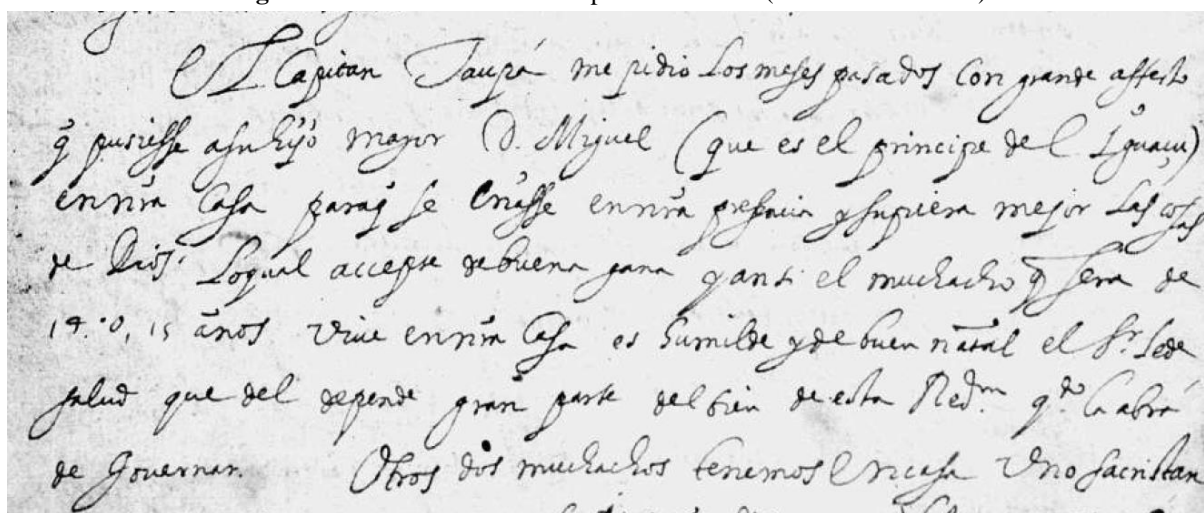 El Capitan Taupá me pidio Los meses pasados Con grande affecto
q̃ pusiesse a su hijo mayor D. Miguel (que es el principe del Iguaçu)
en nr̃a Casa paraq̃ se criasse en nr̃a presencia y supiera mejor Las cosas
de Dios. Loqual accepte de buena gana y ansi el muchacho q̃ sera de
14. o, 15 años vive en nr̃a Casa es humilde y de buen natal el Sr. le de
salud que del depende gran parte del bien de esta Redon. qdo la abrá
de Governar. Otros dos muchachos tenemos en casa Uno sacristan